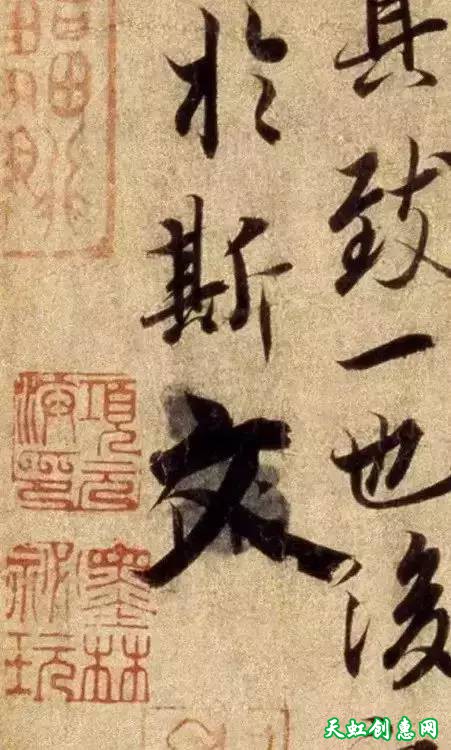 其致一也後
於斯文
項元
汴印
墨林
祕玩
天虹创惠网